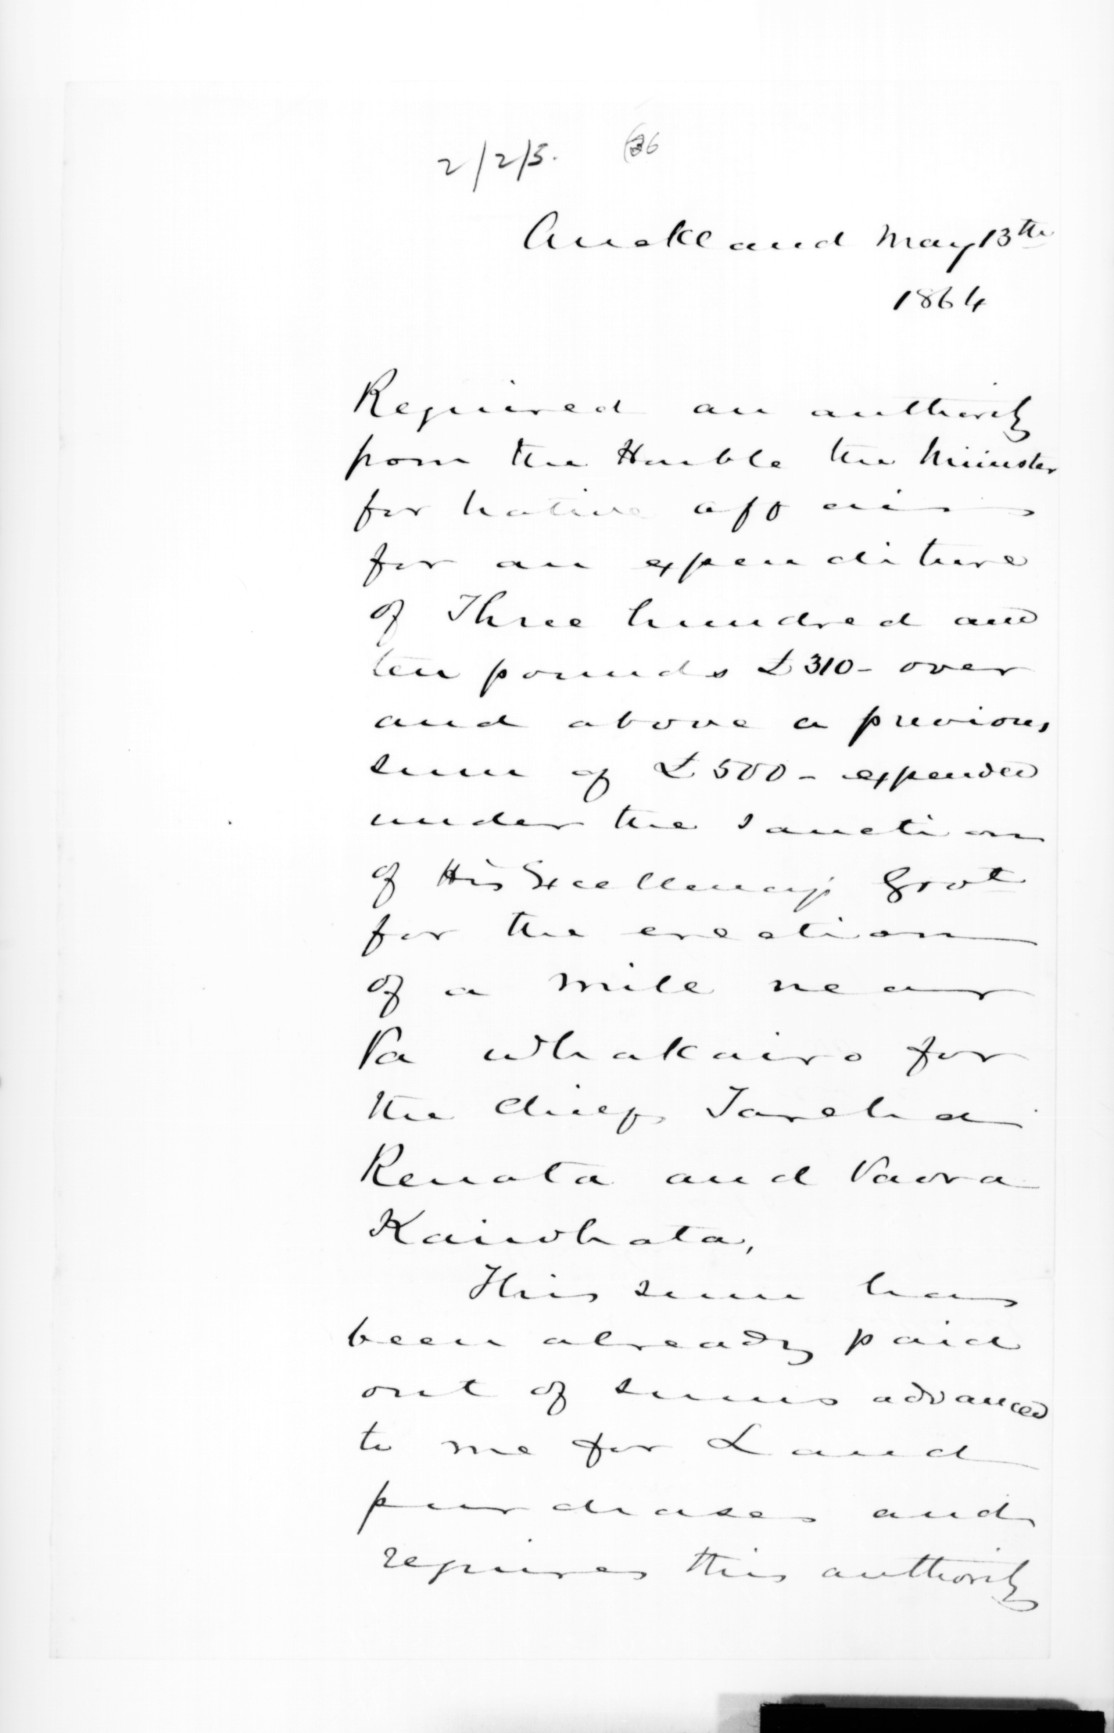 2/2/3. 36
Auckland May 13th
1864
Required an authority
from the Honble the Minister
for Native Affairs
for an expenditure
of Three hundred and
ten pounds £310 - over
and above a previous
sum of £500 - expended
under the sanction
of His Excellency's Govt
for the erection
of a Mill near
Pa Whakairo for
the Chiefs Tareha
Renata and Paora
Kaiwhata,
This sum has
been already paid
out of sums advanced
to me for Land
purchases and
requires this authority